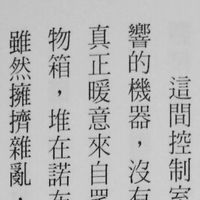 這間控制室
響的機器，沒有
真正暖意來自
物箱，堆在諾
雖然擁擠雜亂，